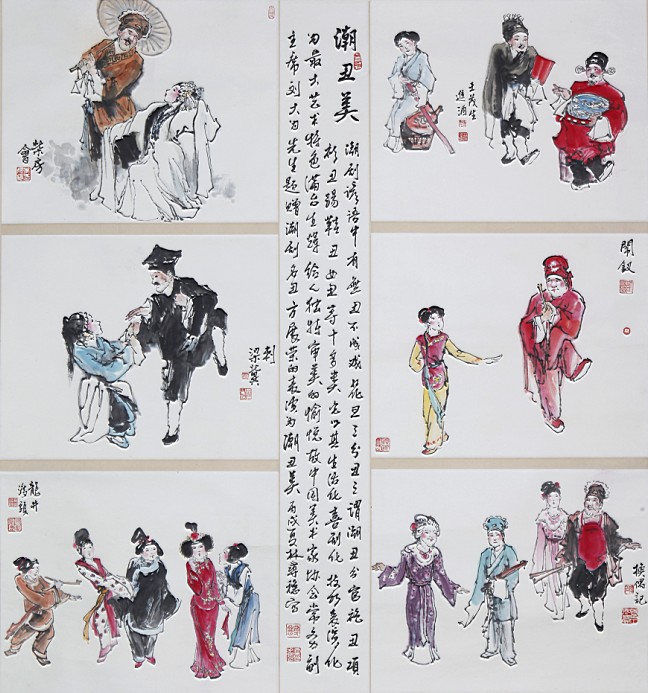 柴房
會
刺
梁冀
龍井
渡頭
潮丑美
潮剧谚语中有無丑不成戏
丑之谓潮丑分官袍丑項
衫丑踢鞋丑女丑等十多类它以其生活化喜剧化
为最大艺术特色满台生辉给人独特审美的愉悦故中国美术家协会常务副
主席刘大为先生题赠潮剧名丑方展荣的表演为潮丑美丙戌夏林
王茂生
進酒
鬧釵
换偶记